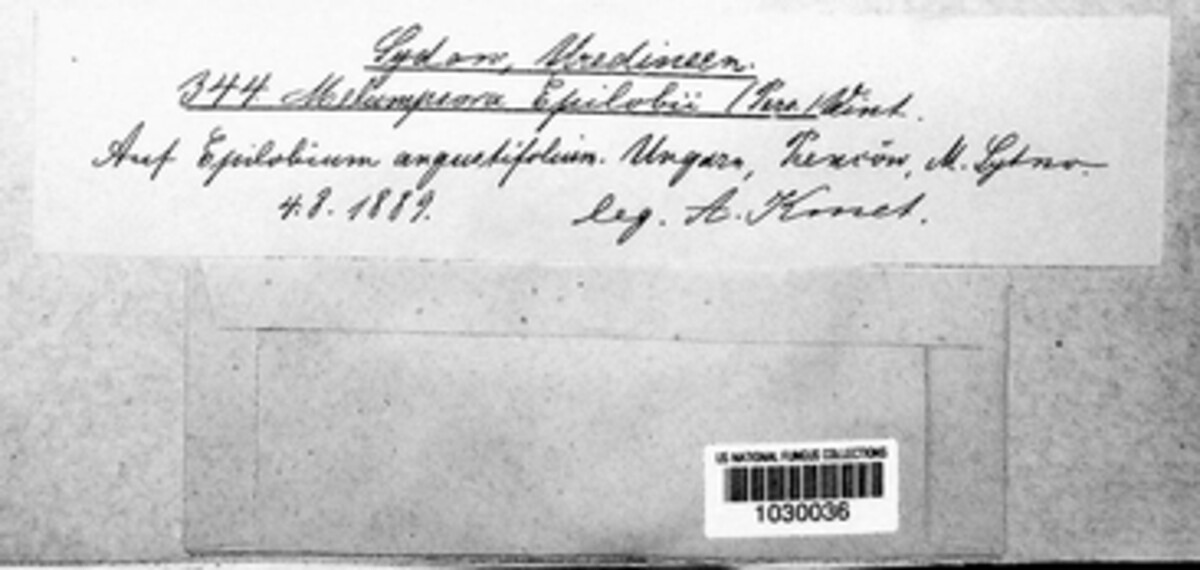 Sydow, Uredineen.
344. Melampsora Epilobii (Pers.) Wint.
Auf Epilobium angustifolium. Ungarn, M.
4.8.1889. leg. A. Kmet.
US NATIONAL FUNGUS COLLECTIONS
1030036